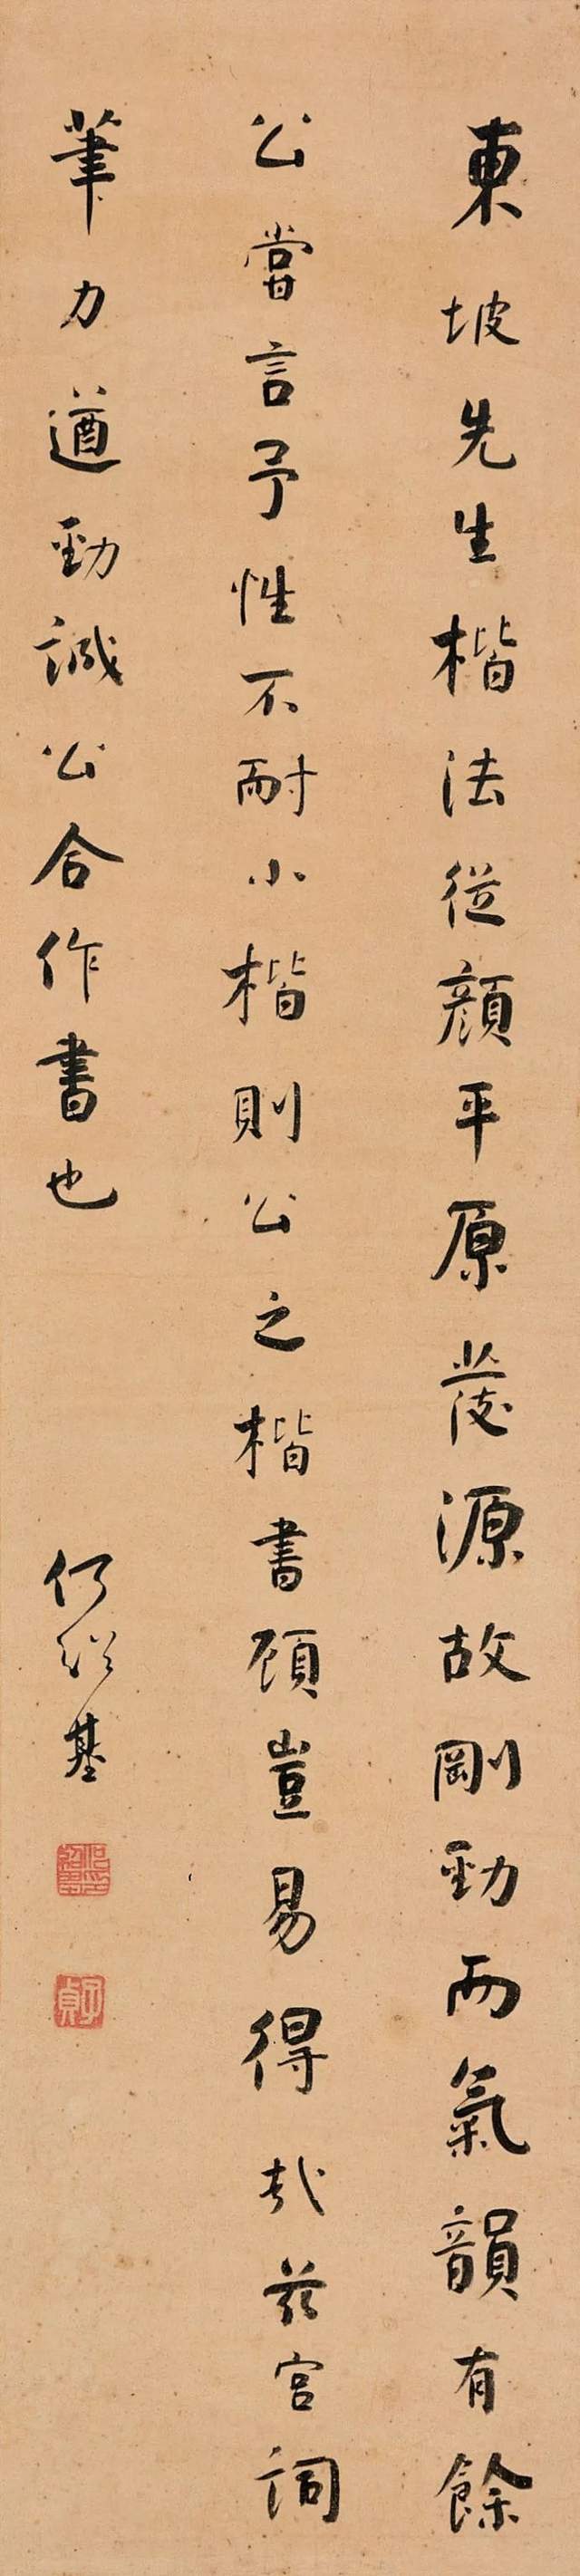 東坡先生楷法從顏平原發源故剛勁而氣韻有餘
公嘗言予性不耐小楷則公之楷書顧豈易得哉茲宮詞
筆力遒勁誠公合作書也
何紹基
何紹基印
子貞